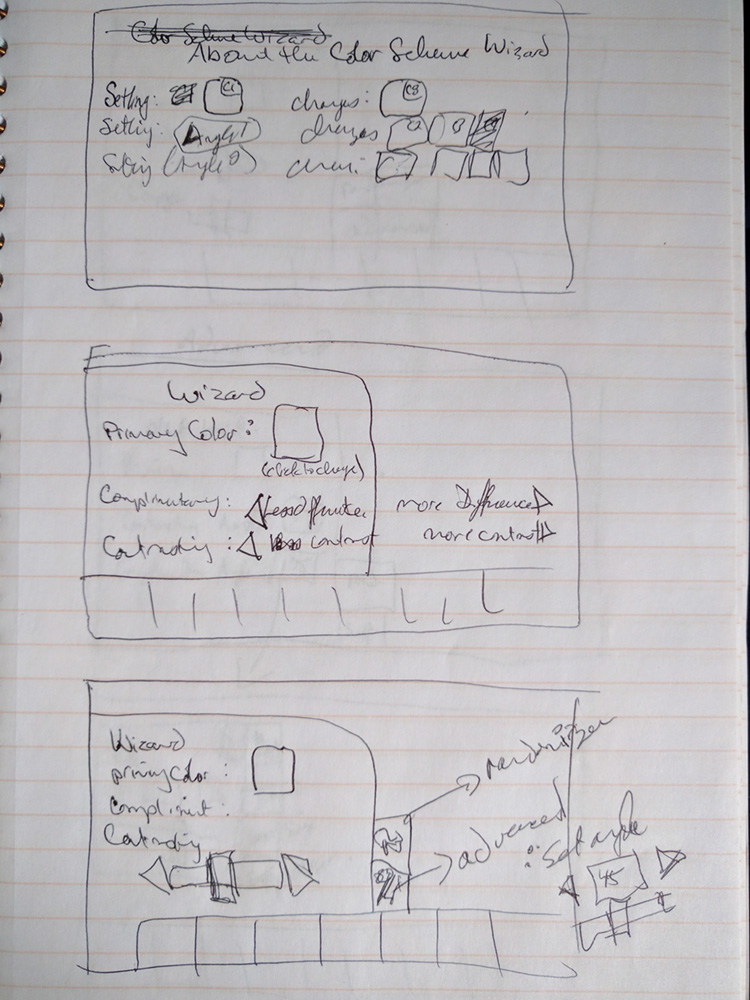 Color Scheme Wizard
About the Color Scheme Wizard
Setting: C1 changes: C3
Setting: Angle 1 changes C2
Setting (Angle 2)
Wizard
Primary Color:
(click to change)
Complimentary: Less more Difference
Contrasting: less contrast more contrast
Wizard
primary color:
compliment:
Contrasting
randomizer
advanced
: Set angle
45